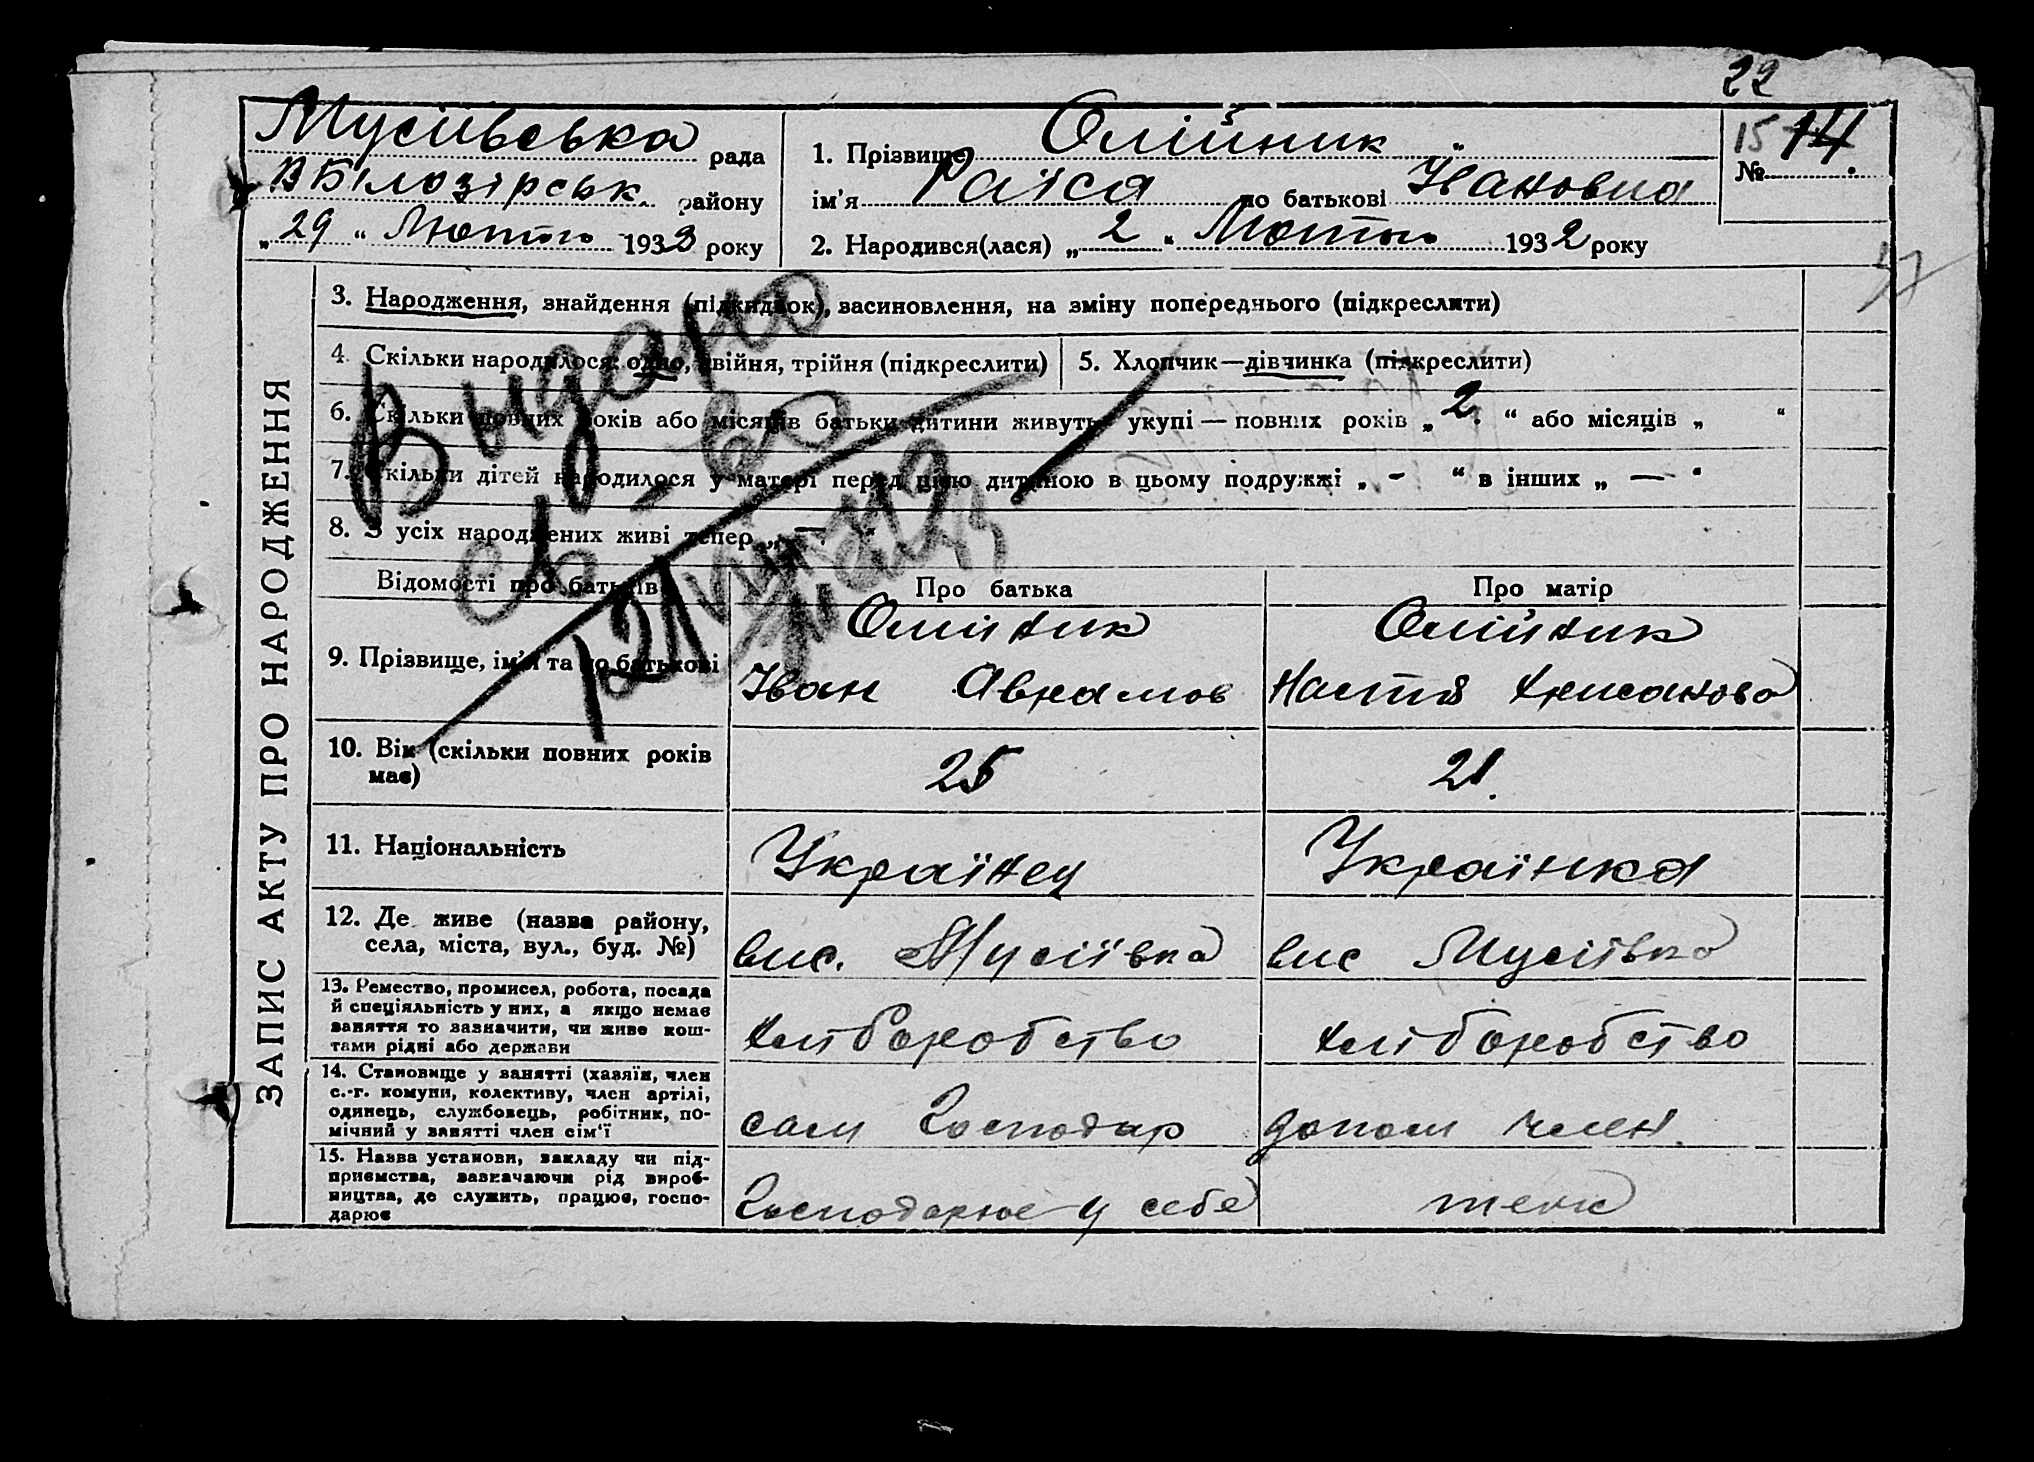 22
Мусіївська рада
ВБілозірськ. району
„ 29 “ Лютого 1932 року
1. Прізвище Олійник
ім’я Раїса по батькові Івановна
2. Народився(лася) „ 2 “ Лютого 1932 року
15 14
№
ЗАПИС АКТУ ПРО НАРОДЖЕННЯ
3. Народження, знайдення (підкидьок), засиновлення, на зміну попереднього (підкреслити)
4. Скільки народилося: одно, двійня, трійня (підкреслити)
5. Хлопчик—дівчинка (підкреслити)
6. Скільки повних років або місяців батьки дитини живуть укупі — повних років „ 2 . “ або місяців „ “
7. Скільки дітей народилося у матері перед цією дитиною в цьому подружжі „ - “ в інших „ — “
8. З усіх народжених живі тепер „ — “
Выдано
св-во
Відомості про батьків
Про батька
Про матір
9. Прізвище, ім’я та по батькові
Олійник
Іван Аврамов
Олійник
Настя Хрисанова
10. Вік (скільки повних років має)
25
21.
11. Національність
Українец
Українка
12. Де живе (назва району, села, міста, вул., буд. №)
вис. Мусіївка
вис Мусіївка
13. Ремество, промисел, робота, посада
й спеціяльність у них, а якщо немає
заняття то зазначити, чи живе кош-
тами рідні або держави
хліборобство
хліборобство
14. Становище у занятті (хазяїн, член
с.-г. комуни, колективу, член артілі,
одинець, службовець, робітник, по-
мічний у занятті член сім’ї
сам Господар
допом член.
15. Назва установи, закладу чи під-
приємства, зазначаючи рід вироб-
ництва, де служить, працює, госпо-
дарює
Господарює у себе
теж